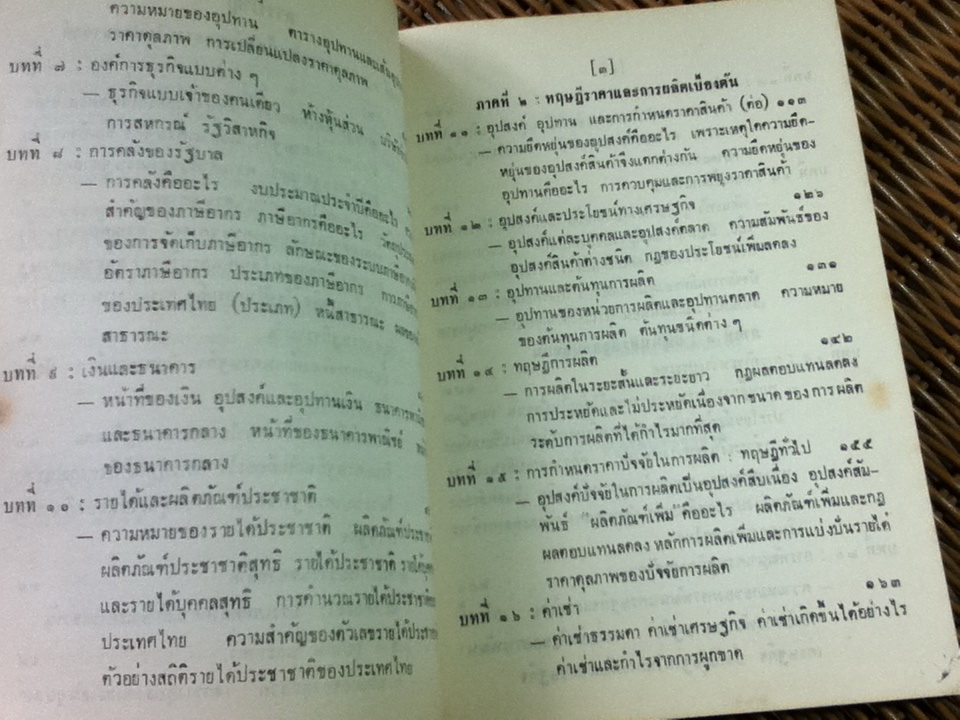 ความหมายของอุปทาน ตารางอุปทานและเส้น
ราคาดุลภาพ การเปลี่ยนแปลงราคาดุลภาพ
บทที่ ๗ : องค์การธุรกิจแบบต่าง ๆ
— ธุรกิจแบบเจ้าของคนเดียว ห้างหุ้นส่วน
การสหกรณ์ รัฐวิสาหกิจ
บทที่ ๘ : การคลังของรัฐบาล
— การคลังคืออะไร งบประมาณประจำปีคืออะไร
สำคัญของภาษีอากร ภาษีอากรคืออะไร
ของการจัดเก็บภาษีอากร ลักษณะของระบบภาษีอากร
อัตราภาษีอากร ประเภทของภาษีอากร
ของประเทศไทย (ประเภท) หนี้สาธารณะ
สาธารณะ
บทที่ ๙ : เงินและธนาคาร
— หน้าที่ของเงิน อุปสงค์และอุปทานเงิน
และธนาคารกลาง หน้าที่ของธนาคารพาณิชย์
ของธนาคารกลาง
บทที่ ๑๐ : รายได้และผลิตภัณฑ์ประชาชาติ
— ความหมายของรายได้ประชาชาติ
ผลิตภัณฑ์ประชาชาติสุทธิ รายได้ประชาชาติ
และรายได้บุคคลสุทธิ การคำนวณรายได้ประชาชาติ
ประเทศไทย ความสำคัญของตัวเลขรายได้ประชาชาติ
ตัวอย่างสถิติรายได้ประชาชาติของประเทศไทย
[๓]
ภาคที่ ๒ : ทฤษฎีราคาและการผลิตเบื้องต้น
บทที่ ๑๑ : อุปสงค์ อุปทาน และการกำหนดราคาสินค้า (ต่อ) ๑๑๓
— ความยืดหยุ่นของอุปสงค์คืออะไร เพราะเหตุใดความยืด-
หยุ่นของอุปสงค์สินค้าจึงแตกต่างกัน ความยืดหยุ่นของ
อุปทานคืออะไร การควบคุมและการพยุงราคาสินค้า
บทที่ ๑๒ : อุปสงค์และประโยชน์ทางเศรษฐกิจ ๑๒๖
— อุปสงค์แต่ละบุคคลและอุปสงค์ตลาด ความสัมพันธ์ของ
อุปสงค์สินค้าต่างชนิด กฎของประโยชน์เพิ่มลดลง
บทที่ ๑๓ : อุปทานและต้นทุนการผลิต ๑๓๑
— อุปทานของหน่วยการผลิตและอุปทานตลาด ความหมาย
ของต้นทุนการผลิต ต้นทุนชนิดต่าง ๆ
บทที่ ๑๔ : ทฤษฎีการผลิต ๑๔๒
— การผลิตในระยะสั้นและระยะยาว กฎผลตอบแทนลดลง
การประหยัดและไม่ประหยัดเนื่องจากขนาดของการผลิต
ระดับการผลิตที่ได้กำไรมากที่สุด
บทที่ ๑๕ : การกำหนดราคาปัจจัยในการผลิต : ทฤษฎีทั่วไป ๑๕๕
— อุปสงค์ปัจจัยในการผลิตเป็นอุปสงค์สืบเนื่อง อุปสงค์สัม-
พันธ์ "ผลิตภัณฑ์เพิ่ม" คืออะไร ผลิตภัณฑ์เพิ่มและกฎ
ผลตอบแทนลดลง หลักการผลิตเพิ่มและการแบ่งปันรายได้
ราคาดุลภาพของปัจจัยการผลิต
บทที่ ๑๖ : ค่าเช่า ๑๖๓
— ค่าเช่าธรรมดา ค่าเช่าเศรษฐกิจ ค่าเช่าเกิดขึ้นได้อย่างไร
ค่าเช่าและกำไรจากการผูกขาด